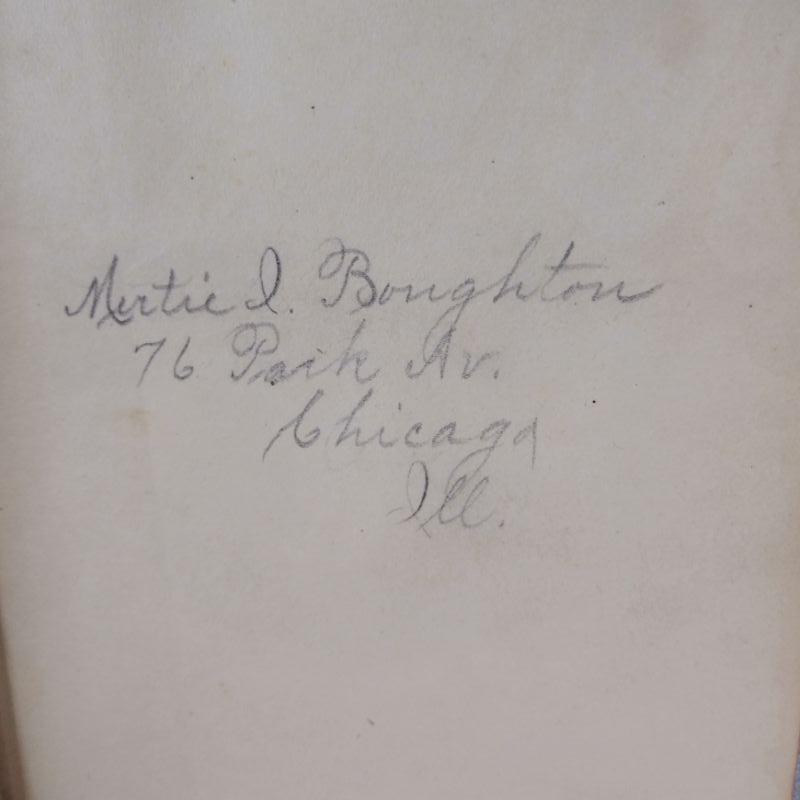 Mertie I. Boughton
76 Park Av.
Chicago
Ill.